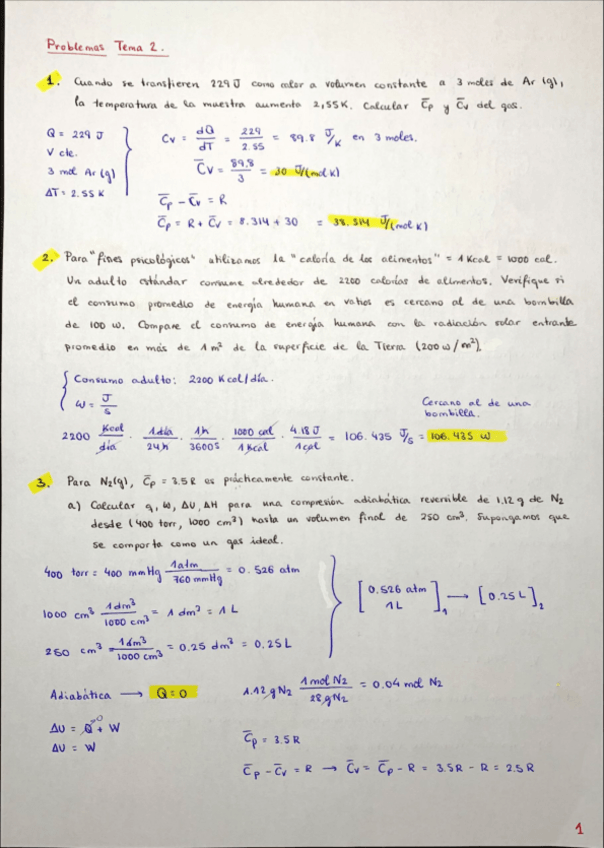 Problemas Tema 2.
1. Cuando se transfieren 229 J como calor a volumen constante a 3 moles de Ar (g),
la temperatura de la muestra aumenta 2,55K. Calcular C̅p y C̅v del gas.
Q = 229 J
V cte.
3 mol Ar (g)
ΔT = 2.55 K
Cv = dQ/dT = 229/2.55 = 89.8 J/K en 3 moles.
C̅v = 89,8/3 = 30 J/(mol K)
C̅p - C̅v = R
C̅p = R + C̅v = 8.314 + 30 = 38.314 J/(mol K)
2. Para "fines psicológicos" utilizamos la "caloría de los alimentos" = 1 Kcal = 1000 cal.
Un adulto estándar consume alrededor de 2200 calorías de alimentos. Verifique si
el consumo promedio de energía humana en vatios es cercano al de una bombilla
de 100 w. Compare el consumo de energía humana con la radiación solar entrante
promedio en más de 1 m² de la superficie de la Tierra (200 w/m²).
Consumo adulto: 2200 Kcal/día.
W = J/s
Cercano al de una
bombilla.
2200 Kcal/día · 1 día/24 h · 1h/3600s · 1000 cal/1 Kcal · 4.18 J/1 cal = 106.435 J/s = 106.435 w
3. Para N2(g), C̅p = 3.5R es prácticamente constante.
a) Calcular q, w, ΔU, ΔH para una compresión adiabática reversible de 1,12 g de N2
desde (400 torr, 1000 cm³) hasta un volumen final de 250 cm³. Supongamos que
se comporta como un gas ideal.
400 torr = 400 mmHg 1atm/760 mmHg = 0.526 atm
1000 cm³ 1dm³/1000 cm³ = 1 dm³ = 1 L
250 cm³ 1dm³/1000 cm³ = 0.25 dm³ = 0.25L
[0.526 atm 1L]₁ → [0.25 L]₂
Adiabática → Q = 0
1.12 g N2 1 mol N2/28 g N2 = 0.04 mol N2
ΔU = Q⁰ + W
ΔU = W
C̅p = 3.5R
C̅p - C̅v = R → C̅v = C̅p - R = 3.5R - R = 2.5R
1